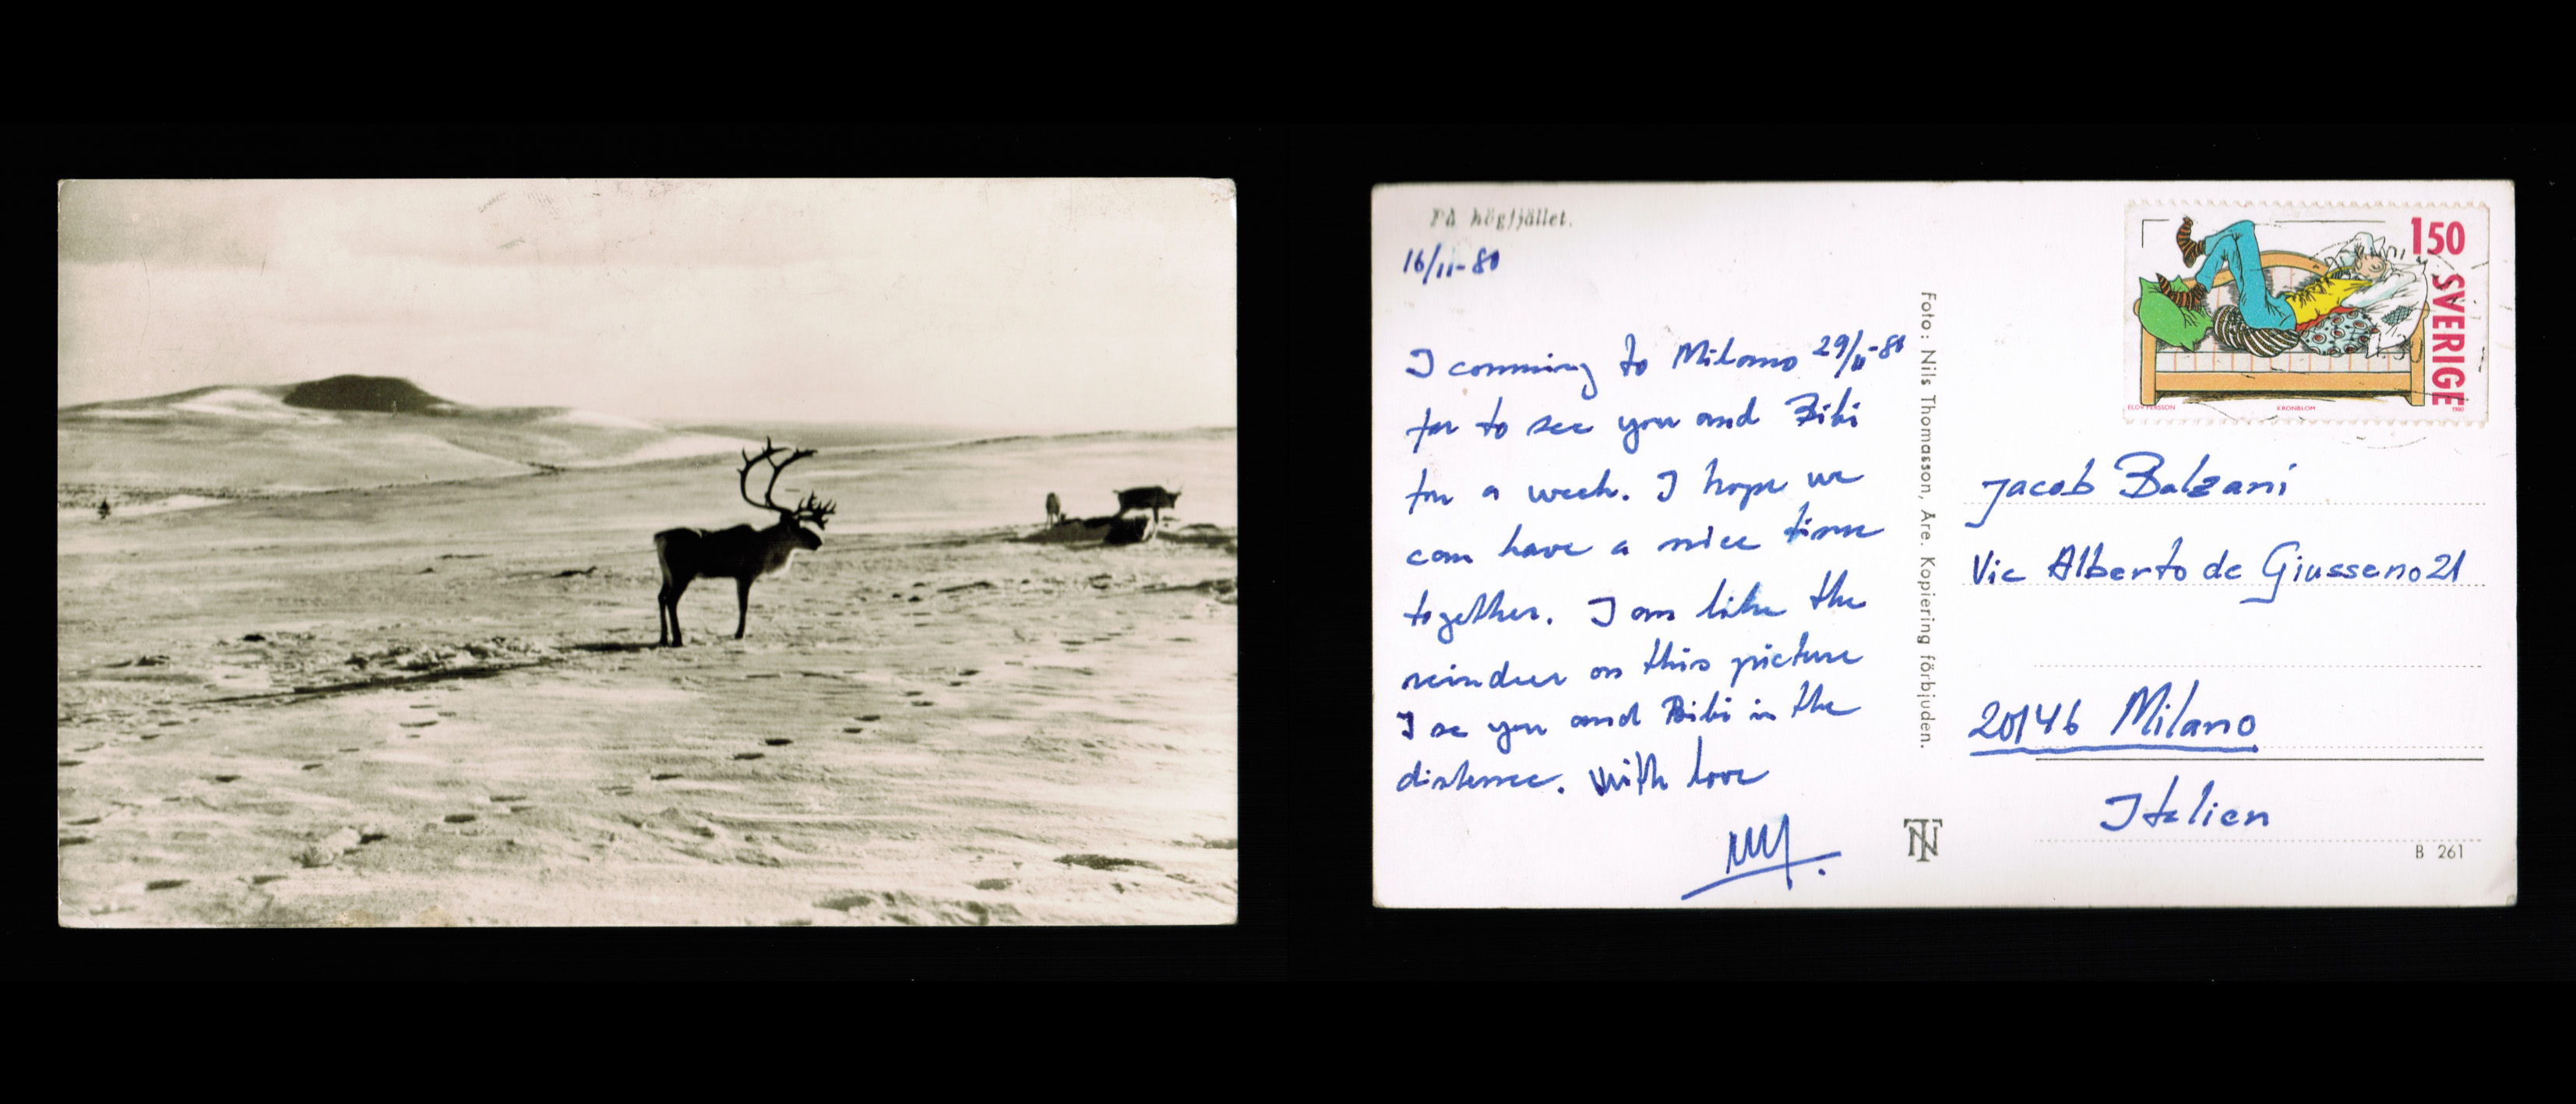 På högfjället.
16/11-80
I comming to Milano 29/11-80
for to see you and Bibi
for a week. I hope we
can have a nice time
together. I am like the
reindeer on this picture
I se you and Bibi in the
distense. With love
Foto: Nils Thomasson, Åre. Kopiering förbjuden.
NT
150
SVERIGE
ELOV PERSSON
KRONBLOM
1980
Jacob Balzani
Via Alberto de Giusseno 21
20146 Milano
Italien
B 261